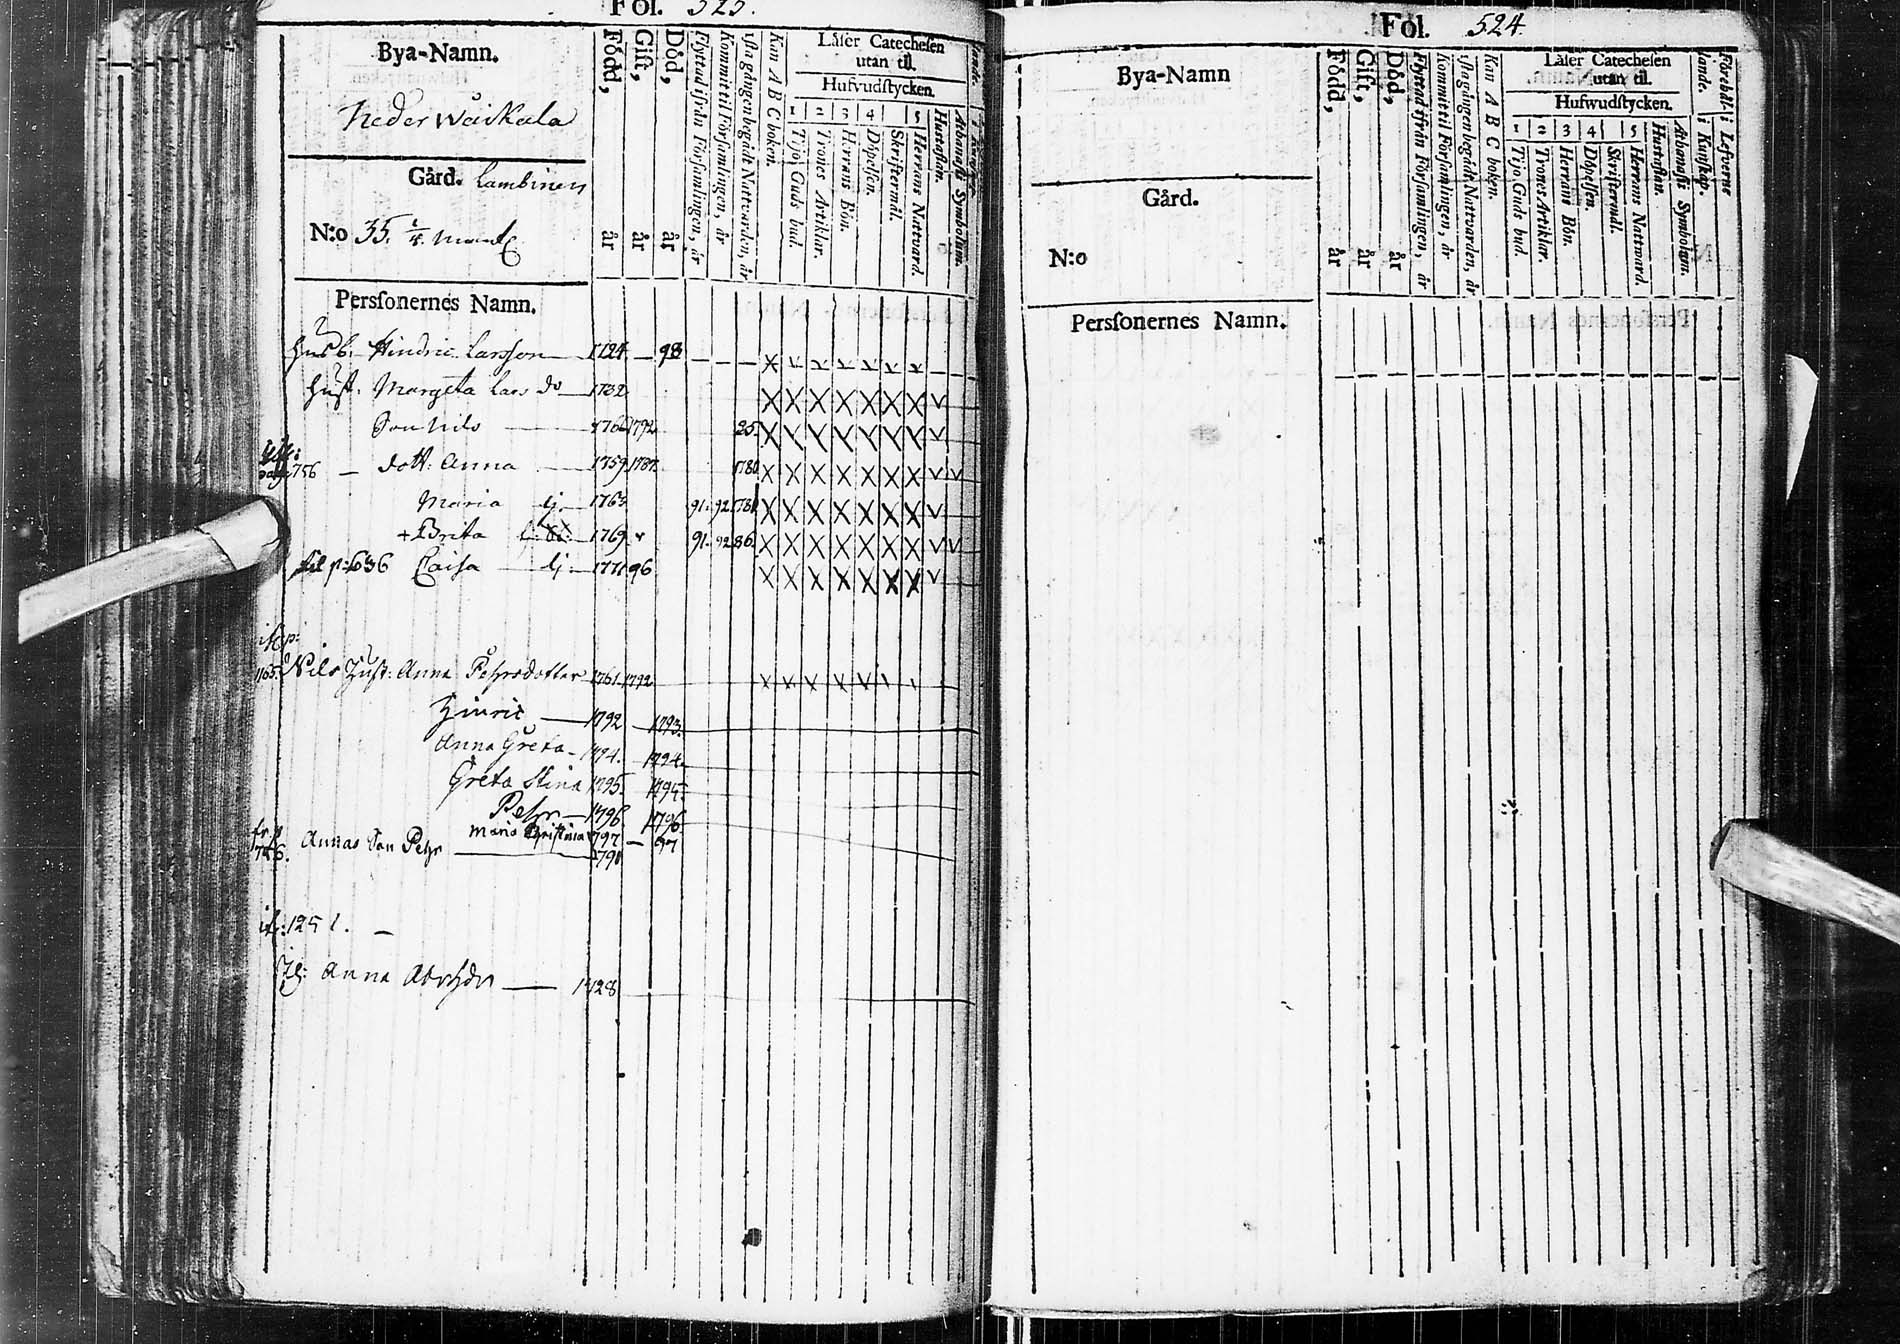 Fol. 523.
Bya-Namn.
Neder Waikala
Gård. Lambinen
N:o 35.
Persſonernes Namn.
Född, år
Gift, år
Död, år
Flyttad ifrån Församlingen, år
Kommit til Församlingen, år
1sta gången begådt Nattvarden, år
Kan A B C boken.
Läſer Catecheſen
utan til.
Hufvudſtycken.
1 2 3 4 5
Tijo Guds bud.
Trones Artiklar.
Herrans Bön.
Döpelſen.
Skriftermål.
Herrans Nattvard.
Huſtaflan.
Athanaſii Symbolum.
Husb. Hindric Larsson 1724 98
Hust. Margeta Lars dr 1732
Son Nils 1766 1792 85
page 756 dott: Anna 1759 1787 1780
Maria 1763 91. 92 1780
+ Brita 1769 91. 92 86
til p: 636 Caisa 1771 96
Nils Hust: Anna Pehrsdotter 1761 1792
Hinric 1792 1793
Anna Greta 1794. 1794.
Greta Stina 1795. 1795.
Pehr 1796 1796
Maria Christina 1797 97
fr. p 756. Annas Son Pehr 1791
1251.
Anna 1728
Fol. 524.
Bya-Namn
Gård.
N:o
Persſonernes Namn.
Född, år
Gift, år
Död, år
Flyttad ifrån Församlingen, år
Kommit til Församlingen, år
1sta gången begådt Nattvarden, år
Kan A B C boken.
Läſer Catecheſen
utan til.
Hufwudſtycken.
1 2 3 4 5
Tijo Guds bud.
Trones Artiklar.
Herrans Bön.
Döpelſen.
Skriftermål.
Herrans Nattvard.
Huſtaflan.
Athanaſii Symbolum.
Förehållande.
i Kunſkap.
i Lefverne